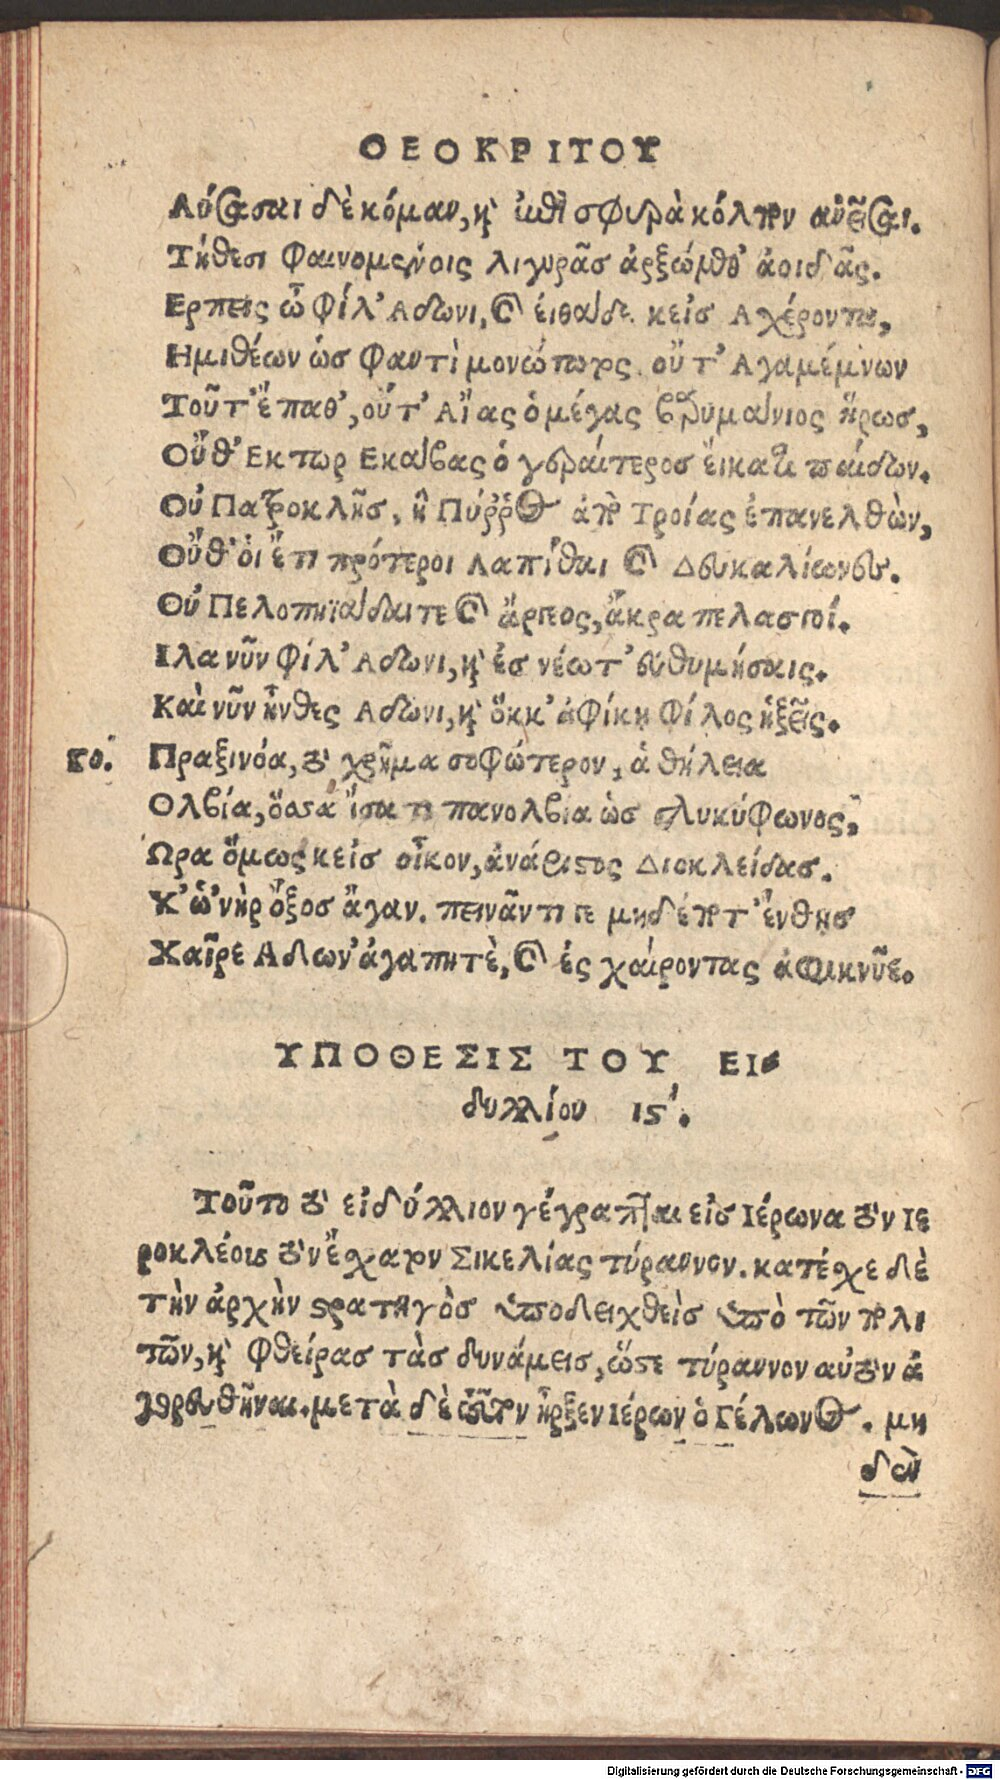 ΘΕΟΚΡΙΤΟΥ
Λύσασαι δὲ κόμαν, καὶ ἐπὶ σφυρὰ κόλπον ἀνεῖσαι.
Τήθεσι φαινομένοις λιγυρᾶσ ἀρξώμεθ' ἀοιδᾶς.
Ερπεις ὦ φίλ' Αδωνι, καὶ ἐιθάδε κεἰσ Αχέροντα,
Ημιθέων ὡσ φαντὶ μονώτατος. οὔτ' Αγαμέμνων
Τοῦτ' ἔπαθ', οὔτ' Αἴας ὁ μέγας βαρυμάνιος ἥρωσ,
Οὔθ' Εκτωρ Εκάβας ὁ γεραίτεροσ ἔικατι παίδων.
Οὐ Πατροκλῆσ, ἢ Πύῤῥος ἀπὸ Τροίας ἐπανελθὼν,
Οὔθ' ὁι ἔτι πρότεροι Λαπίθαι καὶ Δευκαλίωνες.
Οὐ Πελοπηϊάδαι τε καὶ ἄργεος, ἄκρα πελασγοί.
Ιλα νῦν φίλ' Αδωνι, καὶ ἐσ νέωτ' εὐθυμήσαις.
Καὶ νῦν ἦνθες Αδωνι, καὶ ὅκκ' ἀφίκῃ φίλος ἡξεῖς.
γο. Πραξινόα, τὸ χρῆμα σοφώτερον, ἁ θήλεια
Ολβία, ὅσσα ἴσατι πανολβια ὡσ γλυκύφωνος,
Ὡρα ὅμως κεἰσ οἶκον, ἀνάριστος Διοκλείδασ.
Χ' ὡ'νὴρ ὄξοσ ἄγαν. πεινᾶντι γε μηδέποτ' ἔνθῃσ
Χαῖρε Αδων' ἀγαπητὲ, καὶ ἐς χαίροντας ἀφικνεῦ.
ΥΠΟΘΕΣΙΣ ΤΟΥ ΕΙ-
δυλλίου ιϛ'.
Τοῦτο τὸ εἰδύλλιον γέγραπται εἰσ Ιέρωνα τὸν Ιε
ροκλέους τὸν ἔσχατον Σικελίας τύραννον. κατέχε δὲ
τὴν ἀρχὴν στρατηγὸσ ὑποδειχθεὶσ ὑπὸ τῶν πολι
τῶν, καὶ φθείρασ τὰσ δυνάμεισ, ὥστε τύραννον αὐτὸν ἀ
γορευθῆναι. μετὰ δὲ τοῦτον ἦρξεν Ιέρων ὁ Γέλωνος. μη
δὲν
Digitalisierung gefördert durch die Deutsche Forschungsgemeinschaft - DFG